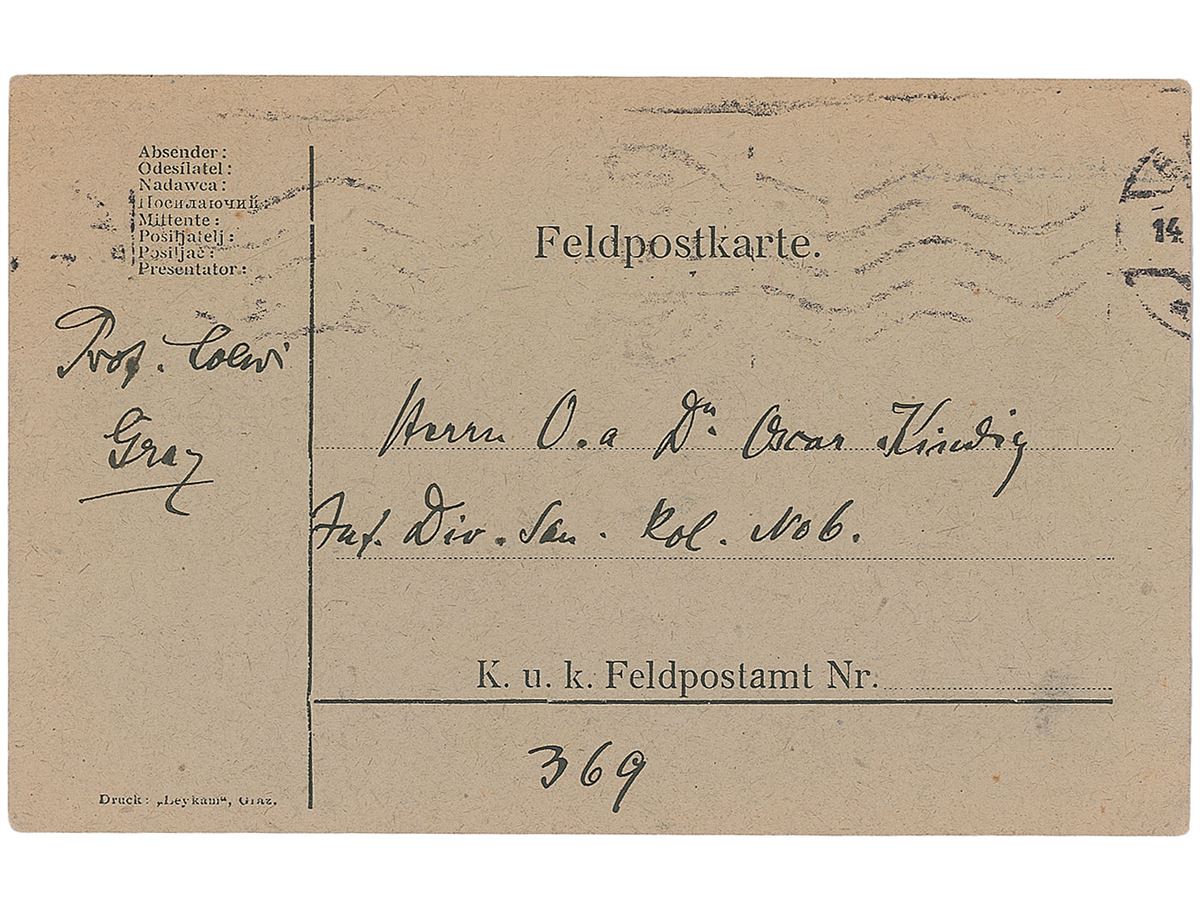 Absender:
Odesílatel:
Nadawca:
Посилаючий:
Mittente:
Pošiljatelj:
Pošiljač:
Presentator:
Prof. Loewi
Graz
Druck: „Leykam“, Graz.
Feldpostkarte.
14
Herrn O.a Dr. Oscar
Inf. Div. San. Kol. No 6.
K. u. k. Feldpostamt Nr.
369